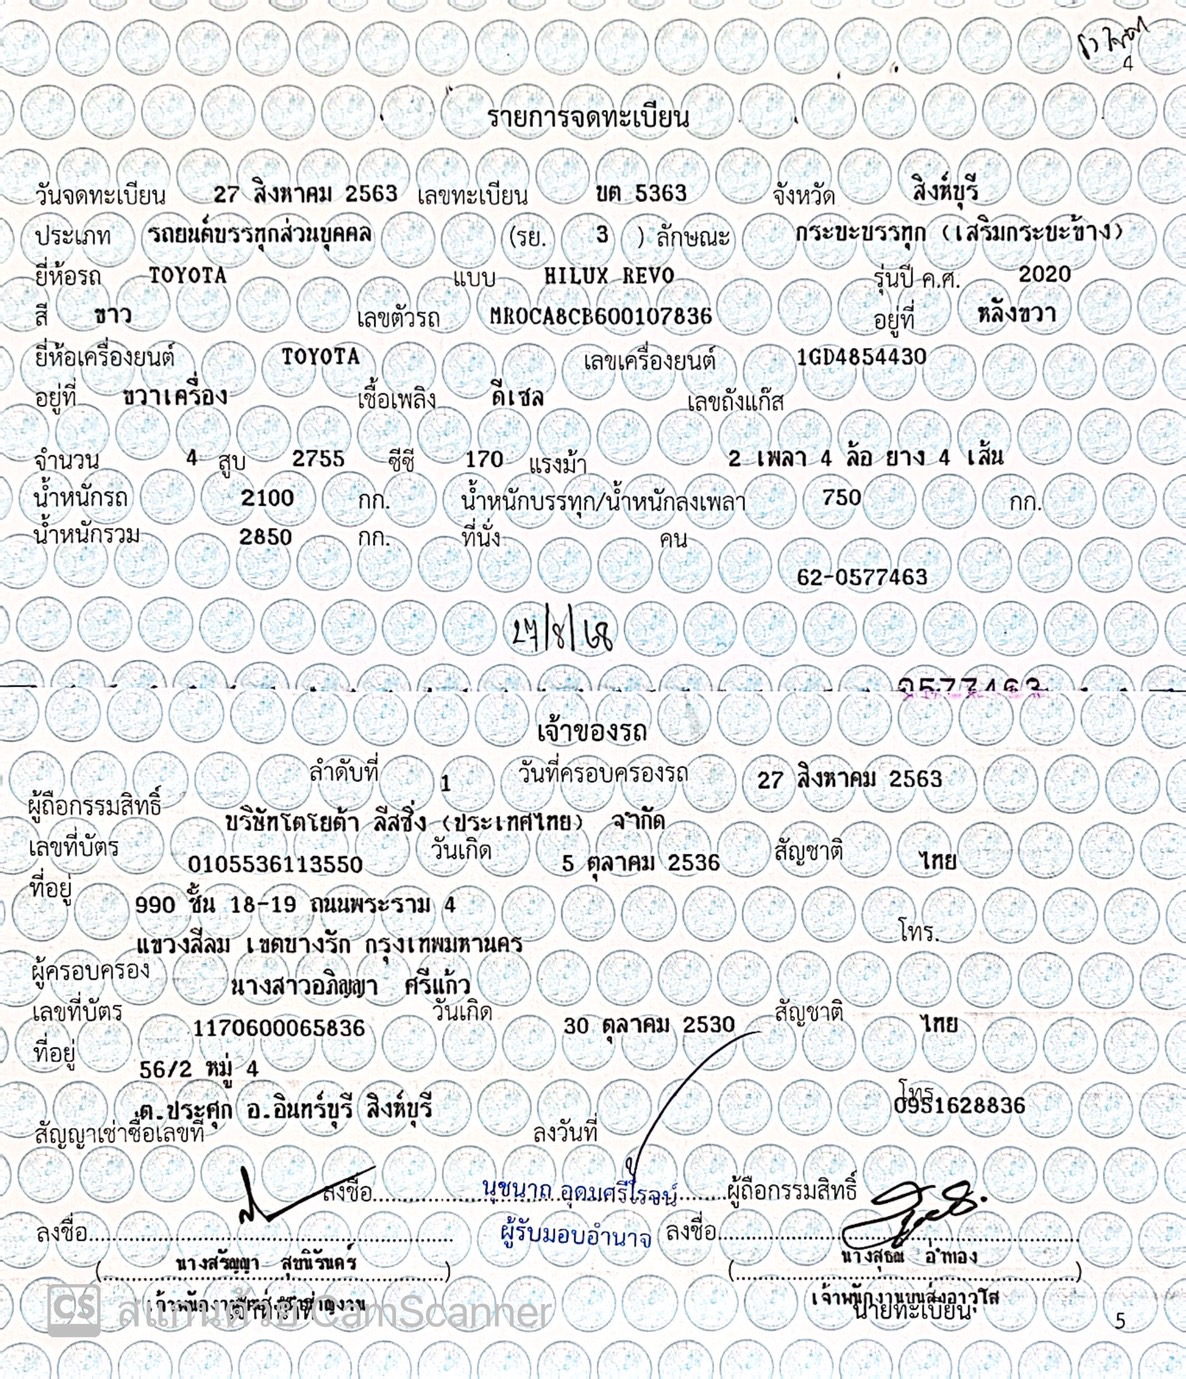 4
รายการจดทะเบียน
วันจดทะเบียน 27 สิงหาคม 2563 เลขทะเบียน ขต 5363 จังหวัด สิงห์บุรี
ประเภท รถยนต์บรรทุกส่วนบุคคล (รย. 3 ) ลักษณะ กระบะบรรทุก (เสริมกระบะข้าง)
ยี่ห้อรถ TOYOTA แบบ HILUX REVO รุ่นปี ค.ศ. 2020
สี ขาว เลขตัวรถ MR0CA8CB600107836 อยู่ที่ หลังขวา
ยี่ห้อเครื่องยนต์ TOYOTA เลขเครื่องยนต์ 1GD4854430
อยู่ที่ ขวาเครื่อง เชื้อเพลิง ดีเซล เลขถังแก๊ส
จำนวน 4 สูบ 2755 ซีซี 170 แรงม้า 2 เพลา 4 ล้อ ยาง 4 เส้น
น้ำหนักรถ 2100 กก. น้ำหนักบรรทุก/น้ำหนักลงเพลา 750 กก.
น้ำหนักรวม 2850 กก. ที่นั่ง คน
62-0577463
27/8/68
0577463
เจ้าของรถ
ลำดับที่ 1 วันที่ครอบครองรถ 27 สิงหาคม 2563
ผู้ถือกรรมสิทธิ์ บริษัทโตโยต้า ลีสซิ่ง (ประเทศไทย) จำกัด
เลขที่บัตร 0105536113550 วันเกิด 5 ตุลาคม 2536 สัญชาติ ไทย
ที่อยู่ 990 ชั้น 18-19 ถนนพระราม 4
แขวงสีลม เขตบางรัก กรุงเทพมหานคร โทร.
ผู้ครอบครอง นางสาวอภิญญา ศรีแก้ว
เลขที่บัตร 1170600065836 วันเกิด 30 ตุลาคม 2530 สัญชาติ ไทย
ที่อยู่ 56/2 หมู่ 4
ต.ประศุก อ.อินทร์บุรี สิงห์บุรี โทร. 0951628836
สัญญาเช่าซื้อเลขที่ ลงวันที่
ลงชื่อ นุชนาถ อุดมศรีไรจน์ ผู้ถือกรรมสิทธิ์
ลงชื่อ ผู้รับมอบอำนาจ ลงชื่อ
(นางสรัญญา สุขนิรันดร์) (นางสุธณ อ่ำทอง)
เจ้าพนักงานขนส่งอาวุโส
นายทะเบียน
5
CS สแกนด้วย CamScanner